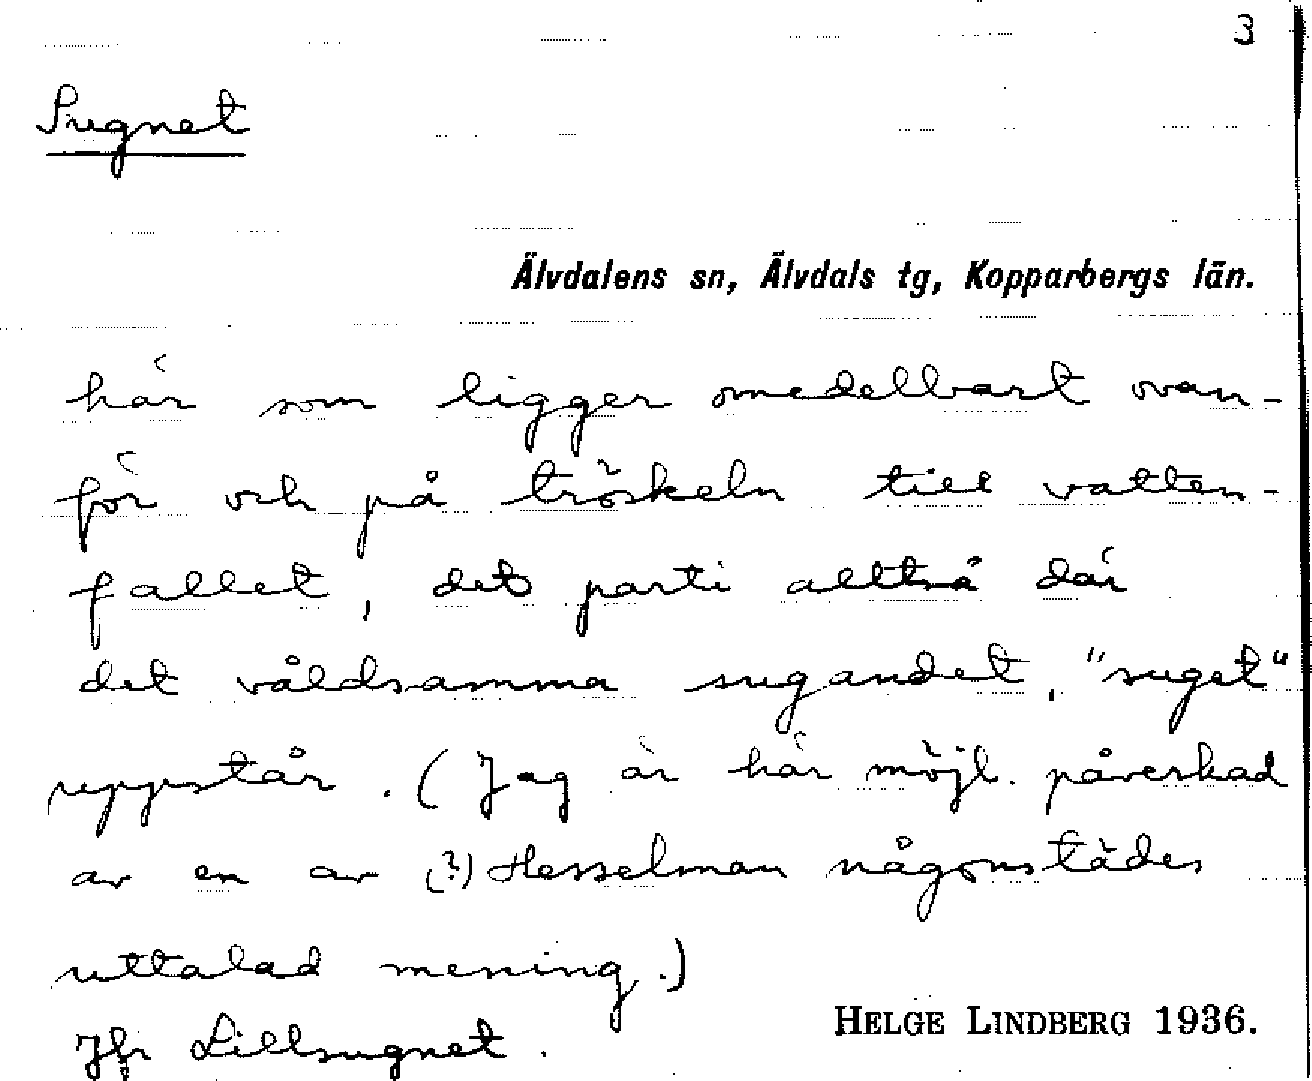 3
Sugnet
Älvdalens sn, Älvdals tg, Kopparbergs län.
här som ligger omedelbart ovan-
för och på tröskeln till vatten-
fallet, det parti alltså där
det våldsamma sugandet, "suget"
uppstår. (Jag är här möjl. påverkad
av en av (?) Hesselman någonstädes
uttalad mening.)
HELGE LINDBERG 1936.
Jfr Lillsugnet.